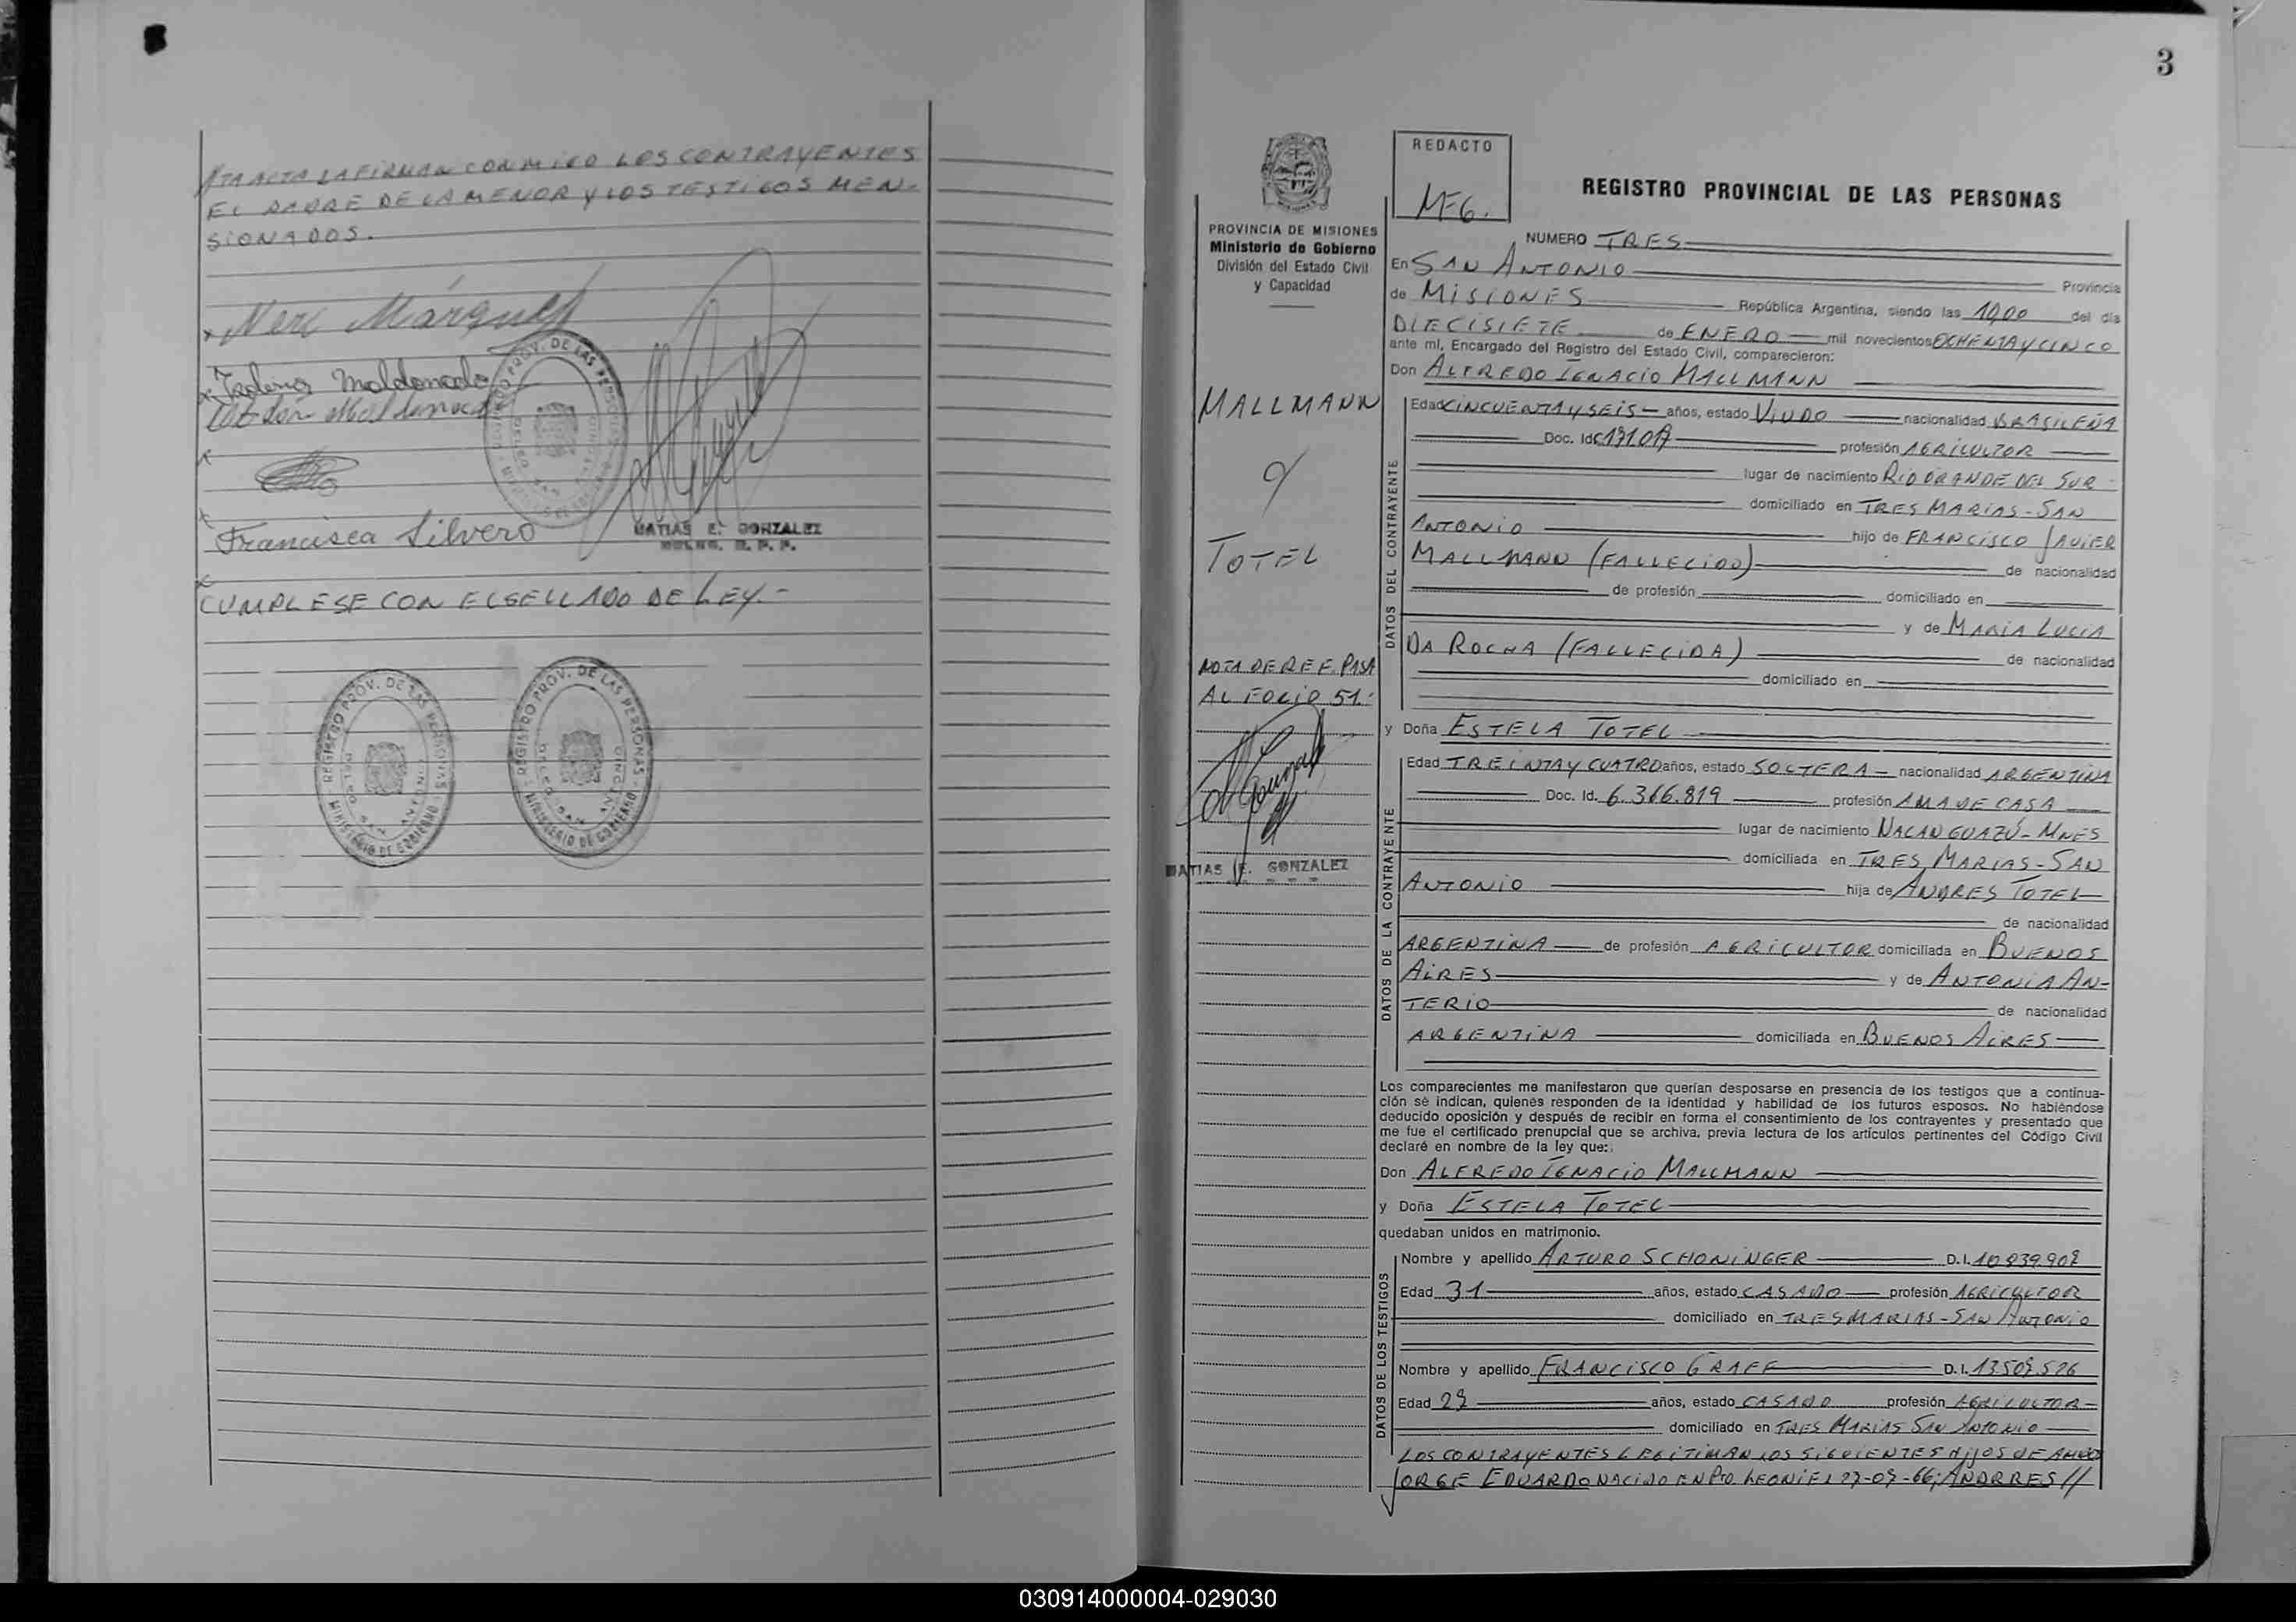 STA ACTA LA FIRMAN CONMIGO LOS CONTRAYENTES
EL PADRE DE LA MENOR Y LOS TESTIGOS MEN-
SIONADOS.
Neri Márquez
Maldonado
Francisca Silvero
MATIAS E. GONZALEZ
CUMPLESE CON EL SELLADO DE LEY.-
REGISTRO PROV. DE LAS PERSONAS
MINISTERIO DE GOBIERNO
3
REDACTO
M-G.
REGISTRO PROVINCIAL DE LAS PERSONAS
PROVINCIA DE MISIONES
Ministerio de Gobierno
División del Estado Civil
y Capacidad
MALLMANN
y
TOTEL
NOTA DE REF. PASA
AL FOLIO 51.-
MATIAS E. GONZALEZ
NUMERO TRES
En SAN ANTONIO Provincia
de MISIONES República Argentina, siendo las 10,00 del día
DIECISIETE de ENERO mil novecientos OCHENTA Y CINCO
ante mí, Encargado del Registro del Estado Civil, comparecieron:
Don ALFREDO IGNACIO MALLMANN
DATOS DEL CONTRAYENTE
Edad CINCUENTA Y SEIS años, estado VIUDO nacionalidad BRASILEÑA
Doc. Id. profesión AGRICULTOR
lugar de nacimiento RIO GRANDE DEL SUR
domiciliado en TRES MARIAS-SAN
ANTONIO hijo de FRANCISCO JAVIER
MALLMANN (FALLECIDO) de nacionalidad
de profesión domiciliado en
y de MARIA LUCIA
DA ROCHA (FALLECIDA) de nacionalidad
domiciliado en
y Doña ESTELA TOTEL
DATOS DE LA CONTRAYENTE
Edad TREINTA Y CUATRO años, estado SOLTERA nacionalidad ARGENTINA
Doc. Id. 6.366.819 profesión AMA DE CASA
lugar de nacimiento ÑACANGUAZÚ-MNES
domiciliada en TRES MARIAS-SAN
ANTONIO hija de ANDRES TOTEL
de nacionalidad
ARGENTINA de profesión AGRICULTOR domiciliada en BUENOS
AIRES y de ANTONIA AN-
TERIO de nacionalidad
ARGENTINA domiciliada en BUENOS AIRES
Los comparecientes me manifestaron que querían desposarse en presencia de los testigos que a continua-
ción se indican, quienes responden de la identidad y habilidad de los futuros esposos. No habiéndose
deducido oposición y después de recibir en forma el consentimiento de los contrayentes y presentado que
me fue el certificado prenupcial que se archiva, previa lectura de los artículos pertinentes del Código Civil
declaré en nombre de la ley que:
Don ALFREDO IGNACIO MALLMANN
y Doña ESTELA TOTEL
quedaban unidos en matrimonio.
DATOS DE LOS TESTIGOS
Nombre y apellido ARTURO SCHONINGER D.I. 10.839.908
Edad 31 años, estado CASADO profesión AGRICULTOR
domiciliado en TRES MARIAS-SAN ANTONIO
Nombre y apellido FRANCISCO GRAFF D.I.
Edad años, estado CASADO profesión AGRICULTOR
domiciliado en TRES MARIAS SAN ANTONIO
LOS CONTRAYENTES LEGITIMAN LOS SIGUIENTES HIJOS DE AMBOS
JORGE EDUARDO NACIDO EN PTO. LEONI EL ANDRRES //
030914000004-029030